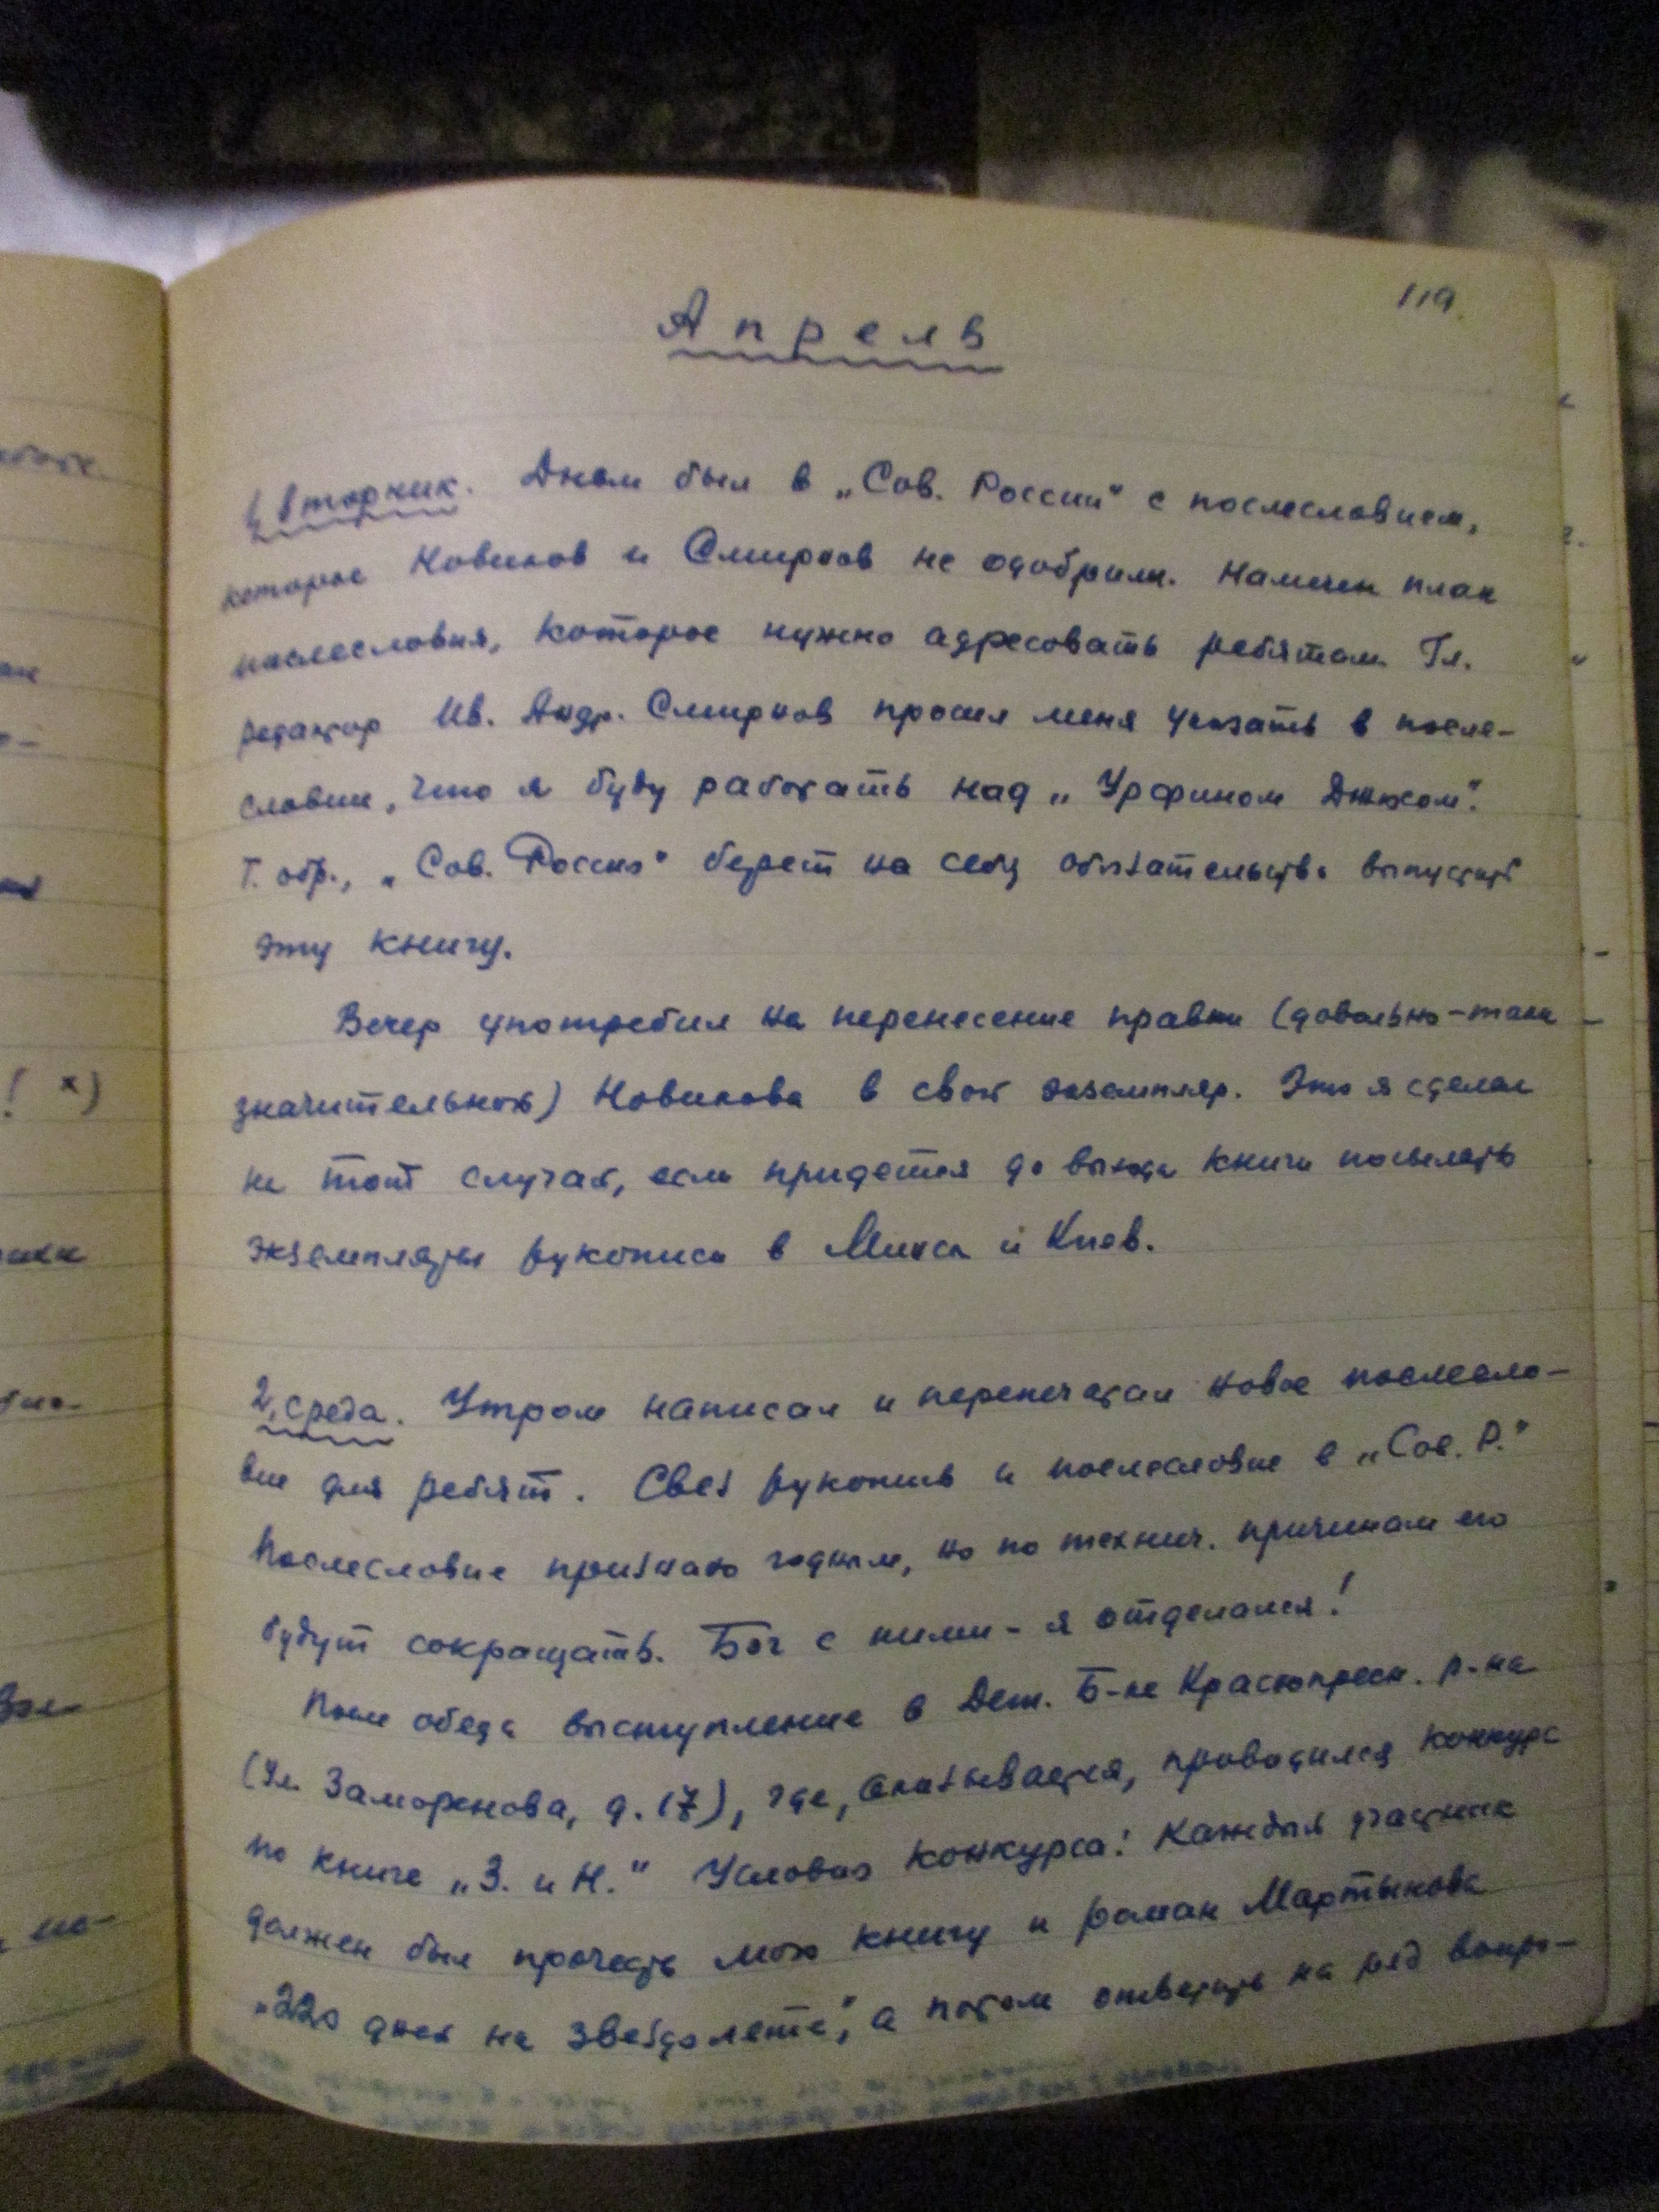 119.
Апрель
1, вторник. Днем был в „Сов. России“ с послесловием,
которое Новиков и Смирнов не одобрили. Намечен план
послесловия, которое нужно адресовать ребятам. Гл.
редактор Ив. Андр. Смирнов просил меня указать в после-
словии, что я буду работать над „Урфином Джюсом“.
Т. обр., „Сов. Россия“ берет на себя обязательство выпустить
эту книгу.
Вечер употребил на перенесение правки (довольно-таки
значительной) Новикова в свой экземпляр. Это я сделал
на тот случай, если придется до выхода книги посылать
экземпляры рукописи в Минск и Киев.
2, среда. Утром написал и перепечатал новое послесло-
вие для ребят. Свез рукопись и послесловие в „Сов. Р.“
Послесловие признано годным, но по технич. причинам его
будут сокращать. Бог с ними - я отделался!
После обеда выступление в Дет. Б-ке Краснопресн. р-на
(Ул. Заморенова, д. 17), где, оказывается, проводился конкурс
по книге „З. и Н.“ Условия конкурса: Каждый участник
должен был прочесть мою книгу и роман Мартынова
„220 дней на звездолете“, а потом ответить на ряд вопро-